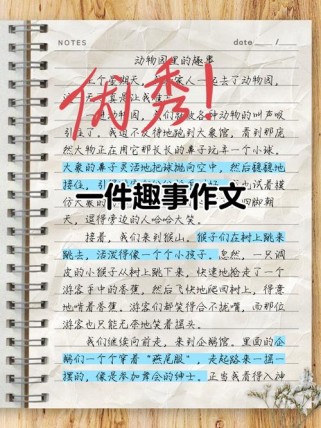 NOTES date
动物园里的趣事
星期天 家人一起去了动物园
优秀!
动物的叫声吸
引住了。我迫不及待地跑到大象馆，看到那庞
然大物正在用它那长长的鼻子玩耍一个小球。
大象的鼻子灵活地把球抛向空中，然后稳稳地
接住，
件趣事作文
试着模
仿大象的 四脚朝
天，逗得旁边的人哈哈大笑。
接着，我们来到猴山。猴子们在树上跳来
跳去，活泼得像一个个小孩子。忽然，一只调
皮的小猴子从树上跳下来，快速地抢走了一个
游客手中的香蕉，然后飞快地爬回树上，得意
地啃着香蕉。游客们都笑得合不拢嘴，而那位
游客也只能无奈地笑着摇头。
我们继续向前走，来到企鹅馆。里面的企
鹅们一个个穿着“燕尾服”，走起路来一摇一
摆的，像是参加舞会的绅士。正当我看得入神